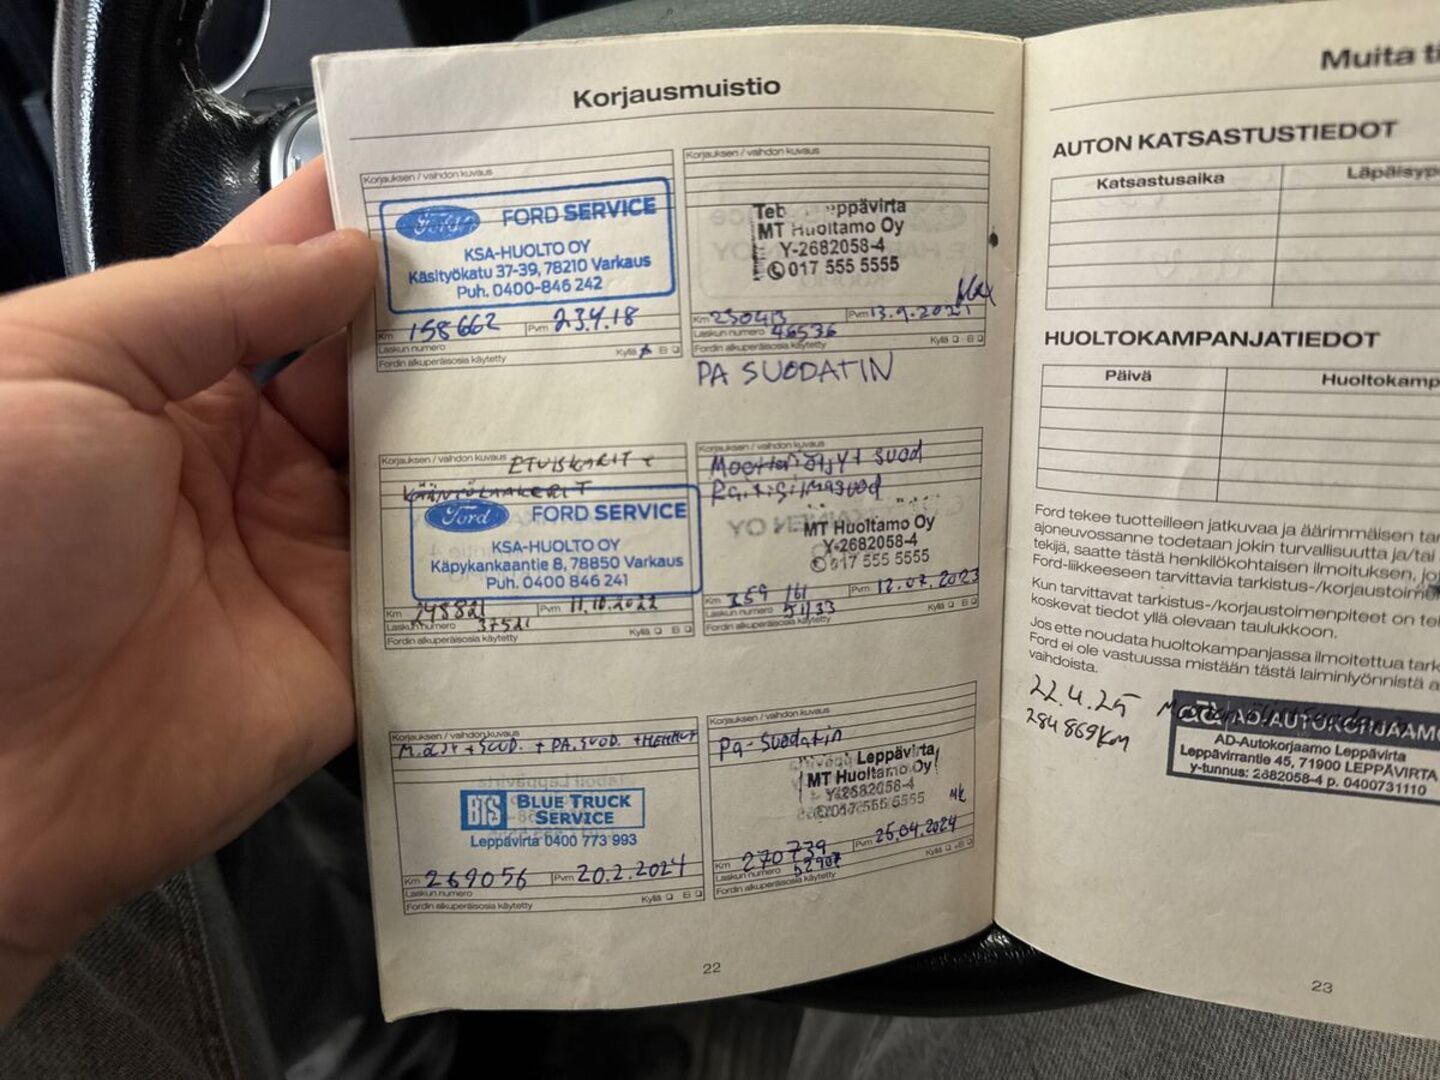 Korjausmuistio
Korjauksen / vaihdon kuvaus
Ford FORD SERVICE
KSA-HUOLTO OY
Käsityökatu 37-39, 78210 Varkaus
Puh. 0400-846 242
Km 158662 Pvm 23.4.18
Laskun numero
Fordin alkuperäisosia käytetty Kyllä Ei
Korjauksen / vaihdon kuvaus
Leppävirta
MT Huoltamo Oy
Y-2682058-4
017 555 5555
Km 230413 Pvm 13.9.2021
Laskun numero 46536
Fordin alkuperäisosia käytetty Kyllä Ei
PA SUODATIN
Korjauksen / vaihdon kuvaus ETUISKARIT +
KÄÄNTÖLAAKERIT
Ford FORD SERVICE
KSA-HUOLTO OY
Käpykankaantie 8, 78850 Varkaus
Puh. 0400 846 241
Km 248821 Pvm 11.10.2022
Laskun numero 37521
Fordin alkuperäisosia käytetty Kyllä Ei
Korjauksen / vaihdon kuvaus
Moottoriöljyt suod
MT Huoltamo Oy
Y-2682058-4
017 555 5555
Km 259 161 Pvm 12.07.2023
Laskun numero 51133
Fordin alkuperäisosia käytetty Kyllä Ei
Korjauksen / vaihdon kuvaus
M.ÖLJY + SUOD. + PA.SUOD.
BTS BLUE TRUCK
SERVICE
Leppävirta 0400 773 993
Km 269056 Pvm 20.2.2024
Laskun numero
Fordin alkuperäisosia käytetty Kyllä Ei
Korjauksen / vaihdon kuvaus
Pa-Suodatin
Leppävirta
MT Huoltamo Oy
Y-2682058-4
017 555 5555
Km 270739 Pvm 25.04.2024
Laskun numero 52907
Fordin alkuperäisosia käytetty Kyllä Ei
22
Muita ti
AUTON KATSASTUSTIEDOT
Katsastusaika Läpäisype
HUOLTOKAMPANJATIEDOT
Päivä Huoltokamp
Ford tekee tuotteilleen jatkuvaa ja äärimmäisen tar
ajoneuvossanne todetaan jokin turvallisuutta ja/tai
tekijä, saatte tästä henkilökohtaisen ilmoituksen, jo
Ford-liikkeeseen tarvittavia tarkistus-/korjaustoimen
Kun tarvittavat tarkistus-/korjaustoimenpiteet on te
koskevat tiedot yllä olevaan taulukkoon.
Jos ette noudata huoltokampanjassa ilmoitettua tark
Ford ei ole vastuussa mistään tästä laiminlyönnistä a
vaihdoista.
22.4.25
284 869km
AD-AUTOKORJAAMO
AD-Autokorjaamo Leppävirta
Leppävirrantie 45, 71900 LEPPÄVIRTA
y-tunnus: 2682058-4 p. 0400731110
23